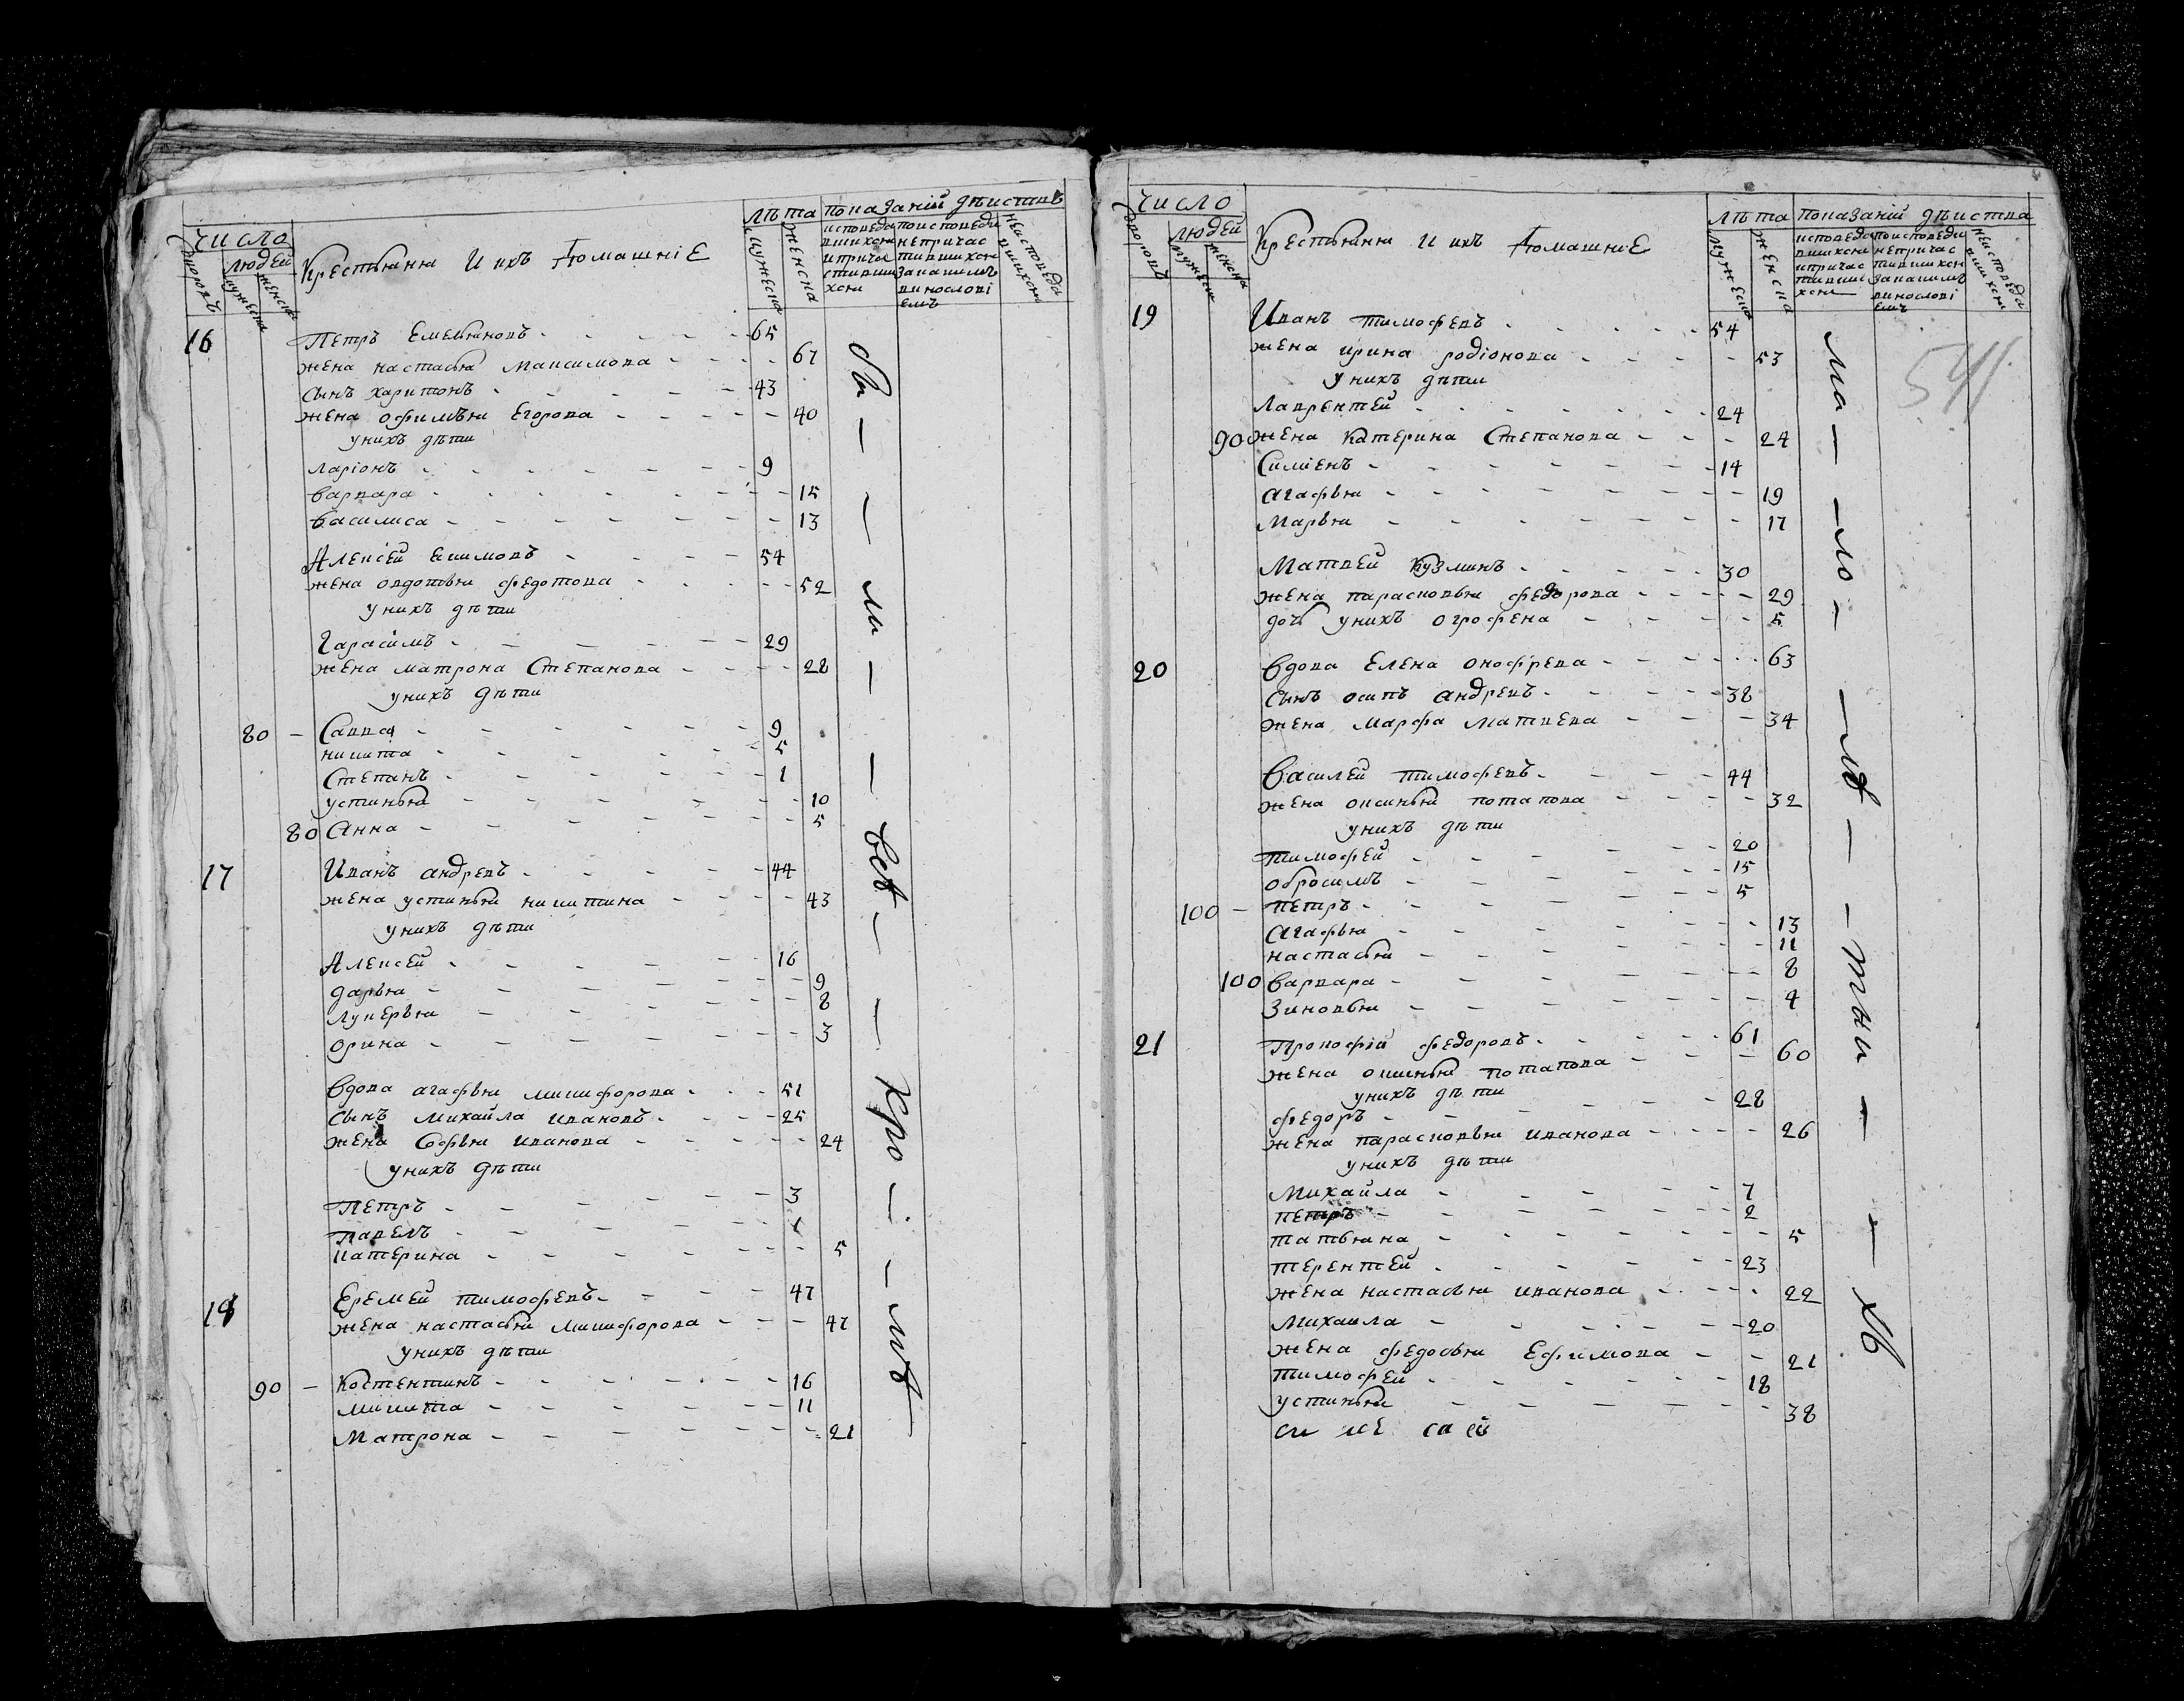 число
лѣта показаніи дѣиствъ
дворовъ
людей
мужеска
женска
Крестьяня И ихъ Домашніе
мужеска
женска
исповеда
вшихся
и причас
стивши
хся
по исповеди
не причас
тившихся
за какимъ
винослові
емъ
не исповеда
вшихся
16 Петръ Емельяновъ 65
жена настасья Максимова 67
сынъ харитонъ 43
жена офимья Егорова 40
у нихъ дѣти
ларіонъ 9
варвара 15
василиса 13
Алексей екимовъ 54
жена овдотья федотова 52
у нихъ дѣти
Гарасимъ 29
жена матрона Степанова 28
у нихъ дѣти
80 Савва 9
никита 5
Степанъ 1
устинья 10
80 Анна 5
17 Иванъ андревъ 44
жена устинья никитина 43
у нихъ дѣти
Алексей 16
дарья 9
лукерья 8
орина 3
вдова агафья никифорова 51
сынъ михайла ивановъ 25
жена Софья иванова 24
у нихъ дѣти
Петръ 3
павелъ 1
катерина 5
18 Еремей тимофевъ 47
жена настасья никифорова 47
у нихъ дѣти
90 Костентинъ 16
микита 11
Матрона 21
число
лѣта показаніи дѣиства
дворовъ
людей
мужеска
женска
Крестьяня И ихъ Домашніе
мужеска
женска
исповеда
вшихся
и причас
тивши
хся
по исповеди
не причас
тившихся
за какимъ
винослові
емъ
не исповеда
вшихся
541
19 Иванъ тимофевъ 54
жена ирина родіонова 53
у нихъ дѣти
Лаврентей 24
90 жена катерина Степанова 24
Симіенъ 14
агафья 19
Марья 17
Матвей Кузминъ 30
жена парасковья федорова 29
дочь у нихъ огрофена 5
20 вдова Елена онофрева 63
сынъ осипъ андревъ 38
жена марфа матвева 34
Василей тимофевъ 44
жена оксинья потапова 32
у нихъ дѣти
тимофей 20
обросимъ 15
100 петръ 5
агафья 13
настасья 11
100 варвара 8
Зиновья 4
21 Прокофій федоровъ 61
жена оксинья потапова 60
у нихъ дѣти
федоръ 28
жена парасковья иванова 26
у нихъ дѣти
Михайла 7
петръ 2
татьяна 5
терентей 23
жена настасья иванова 22
михаила 20
жена федосья Ефимова 21
тимофей 18
устинья 38